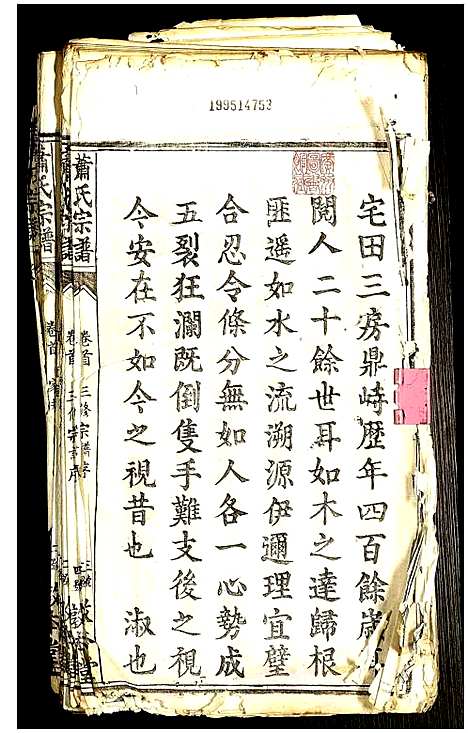 199514753
宅田三房鼎峙歷年四百餘歲
閱人二十餘世耳如木之達歸根
匪遥如水之流溯源伊邇理宜璧
合忍令條分無如人各一心勢成
五裂狂瀾既倒隻手難支後之視
今安在不如今之視昔也　淑也
蕭氏宗譜
卷首
三修宗譜序
蕭氏宗譜
卷首
蕭氏宗譜
卷首